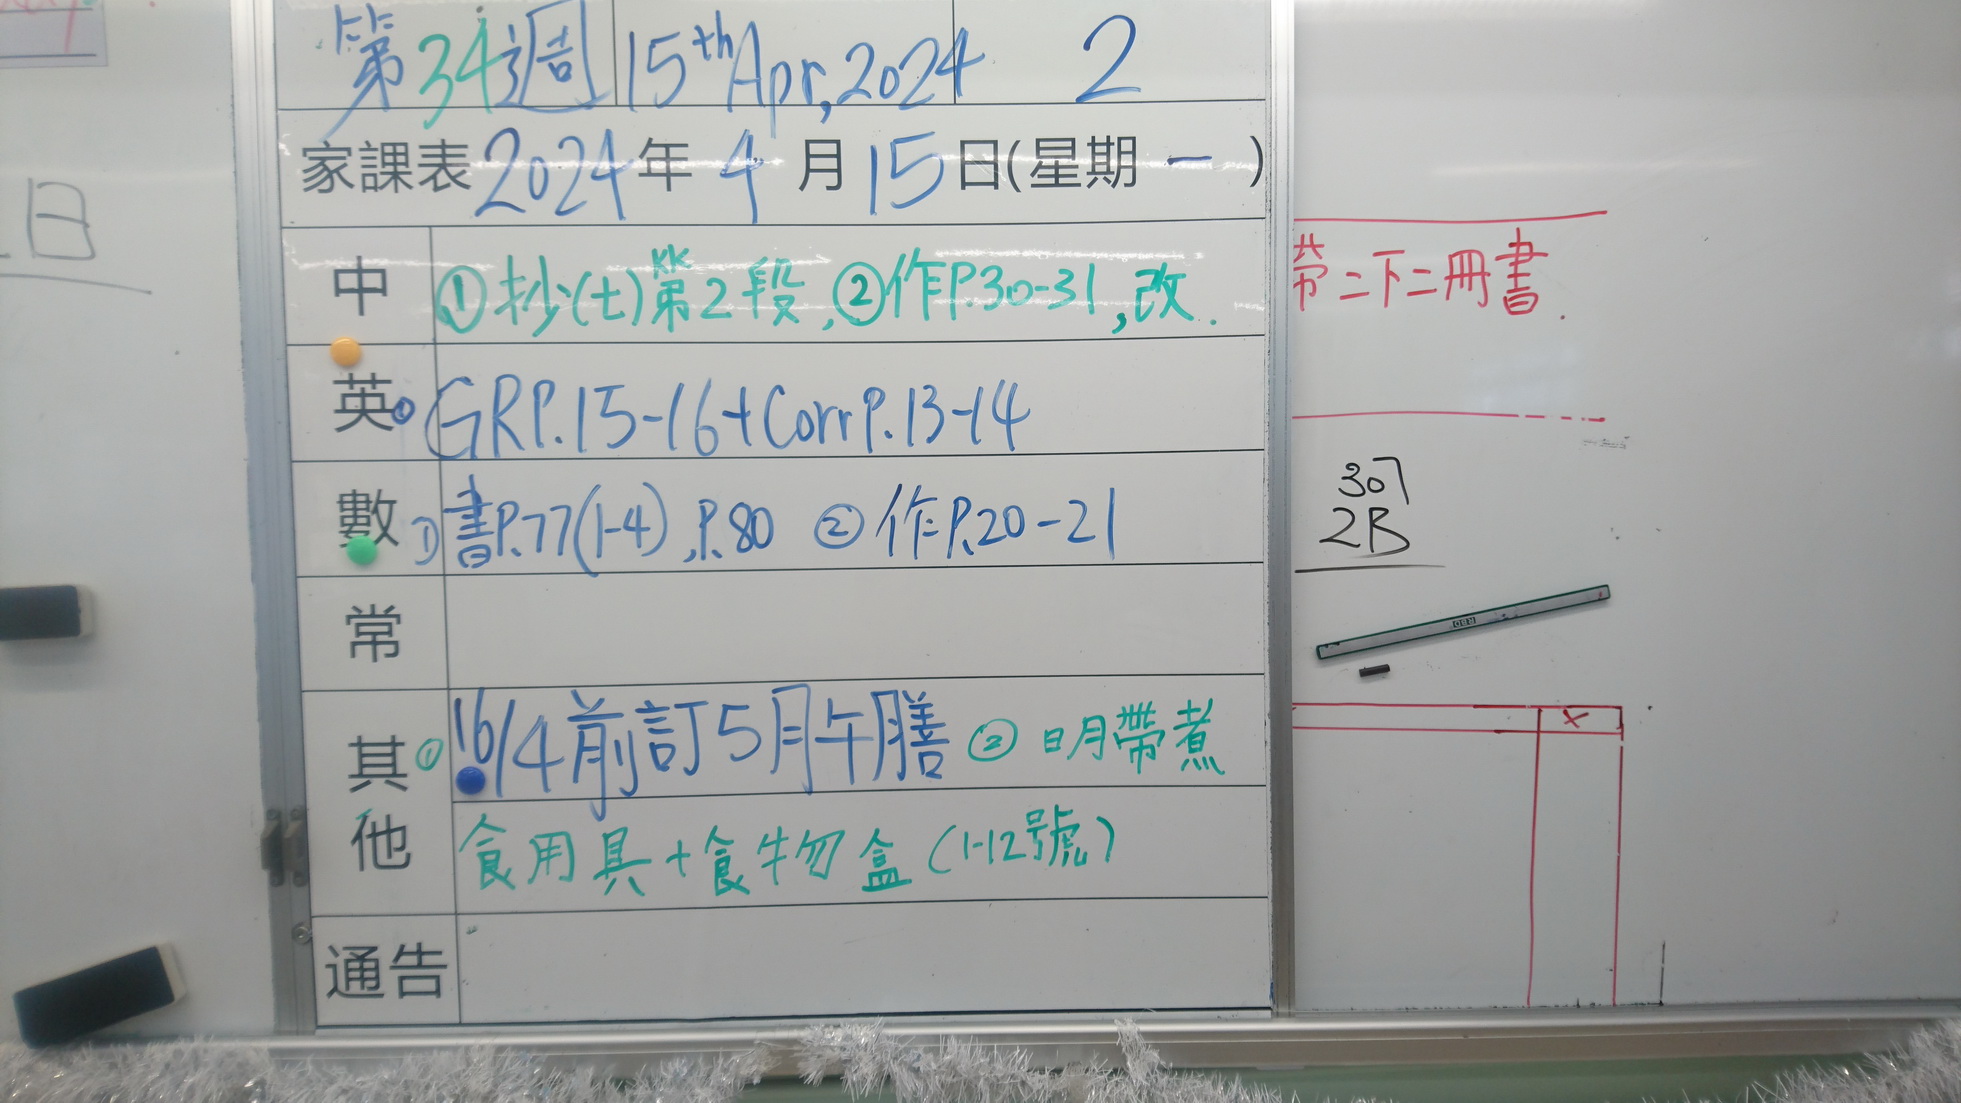 第34週 15th Apr, 2024 2
家課表 2024年 4月 15日(星期一)
中 ①抄(七)第2段, ②作P.30-31, 改.
英 ① GR P.15-16 + Corr P.13-14
數 ① 書P.77(1-4), P.80 ② 作P.20-21
常
其他 ① 16/4前訂5月午膳 ② 明帶煮
食用具+食物盒(1-12號)
通告
日
帶二下二冊書.
307
2B
X